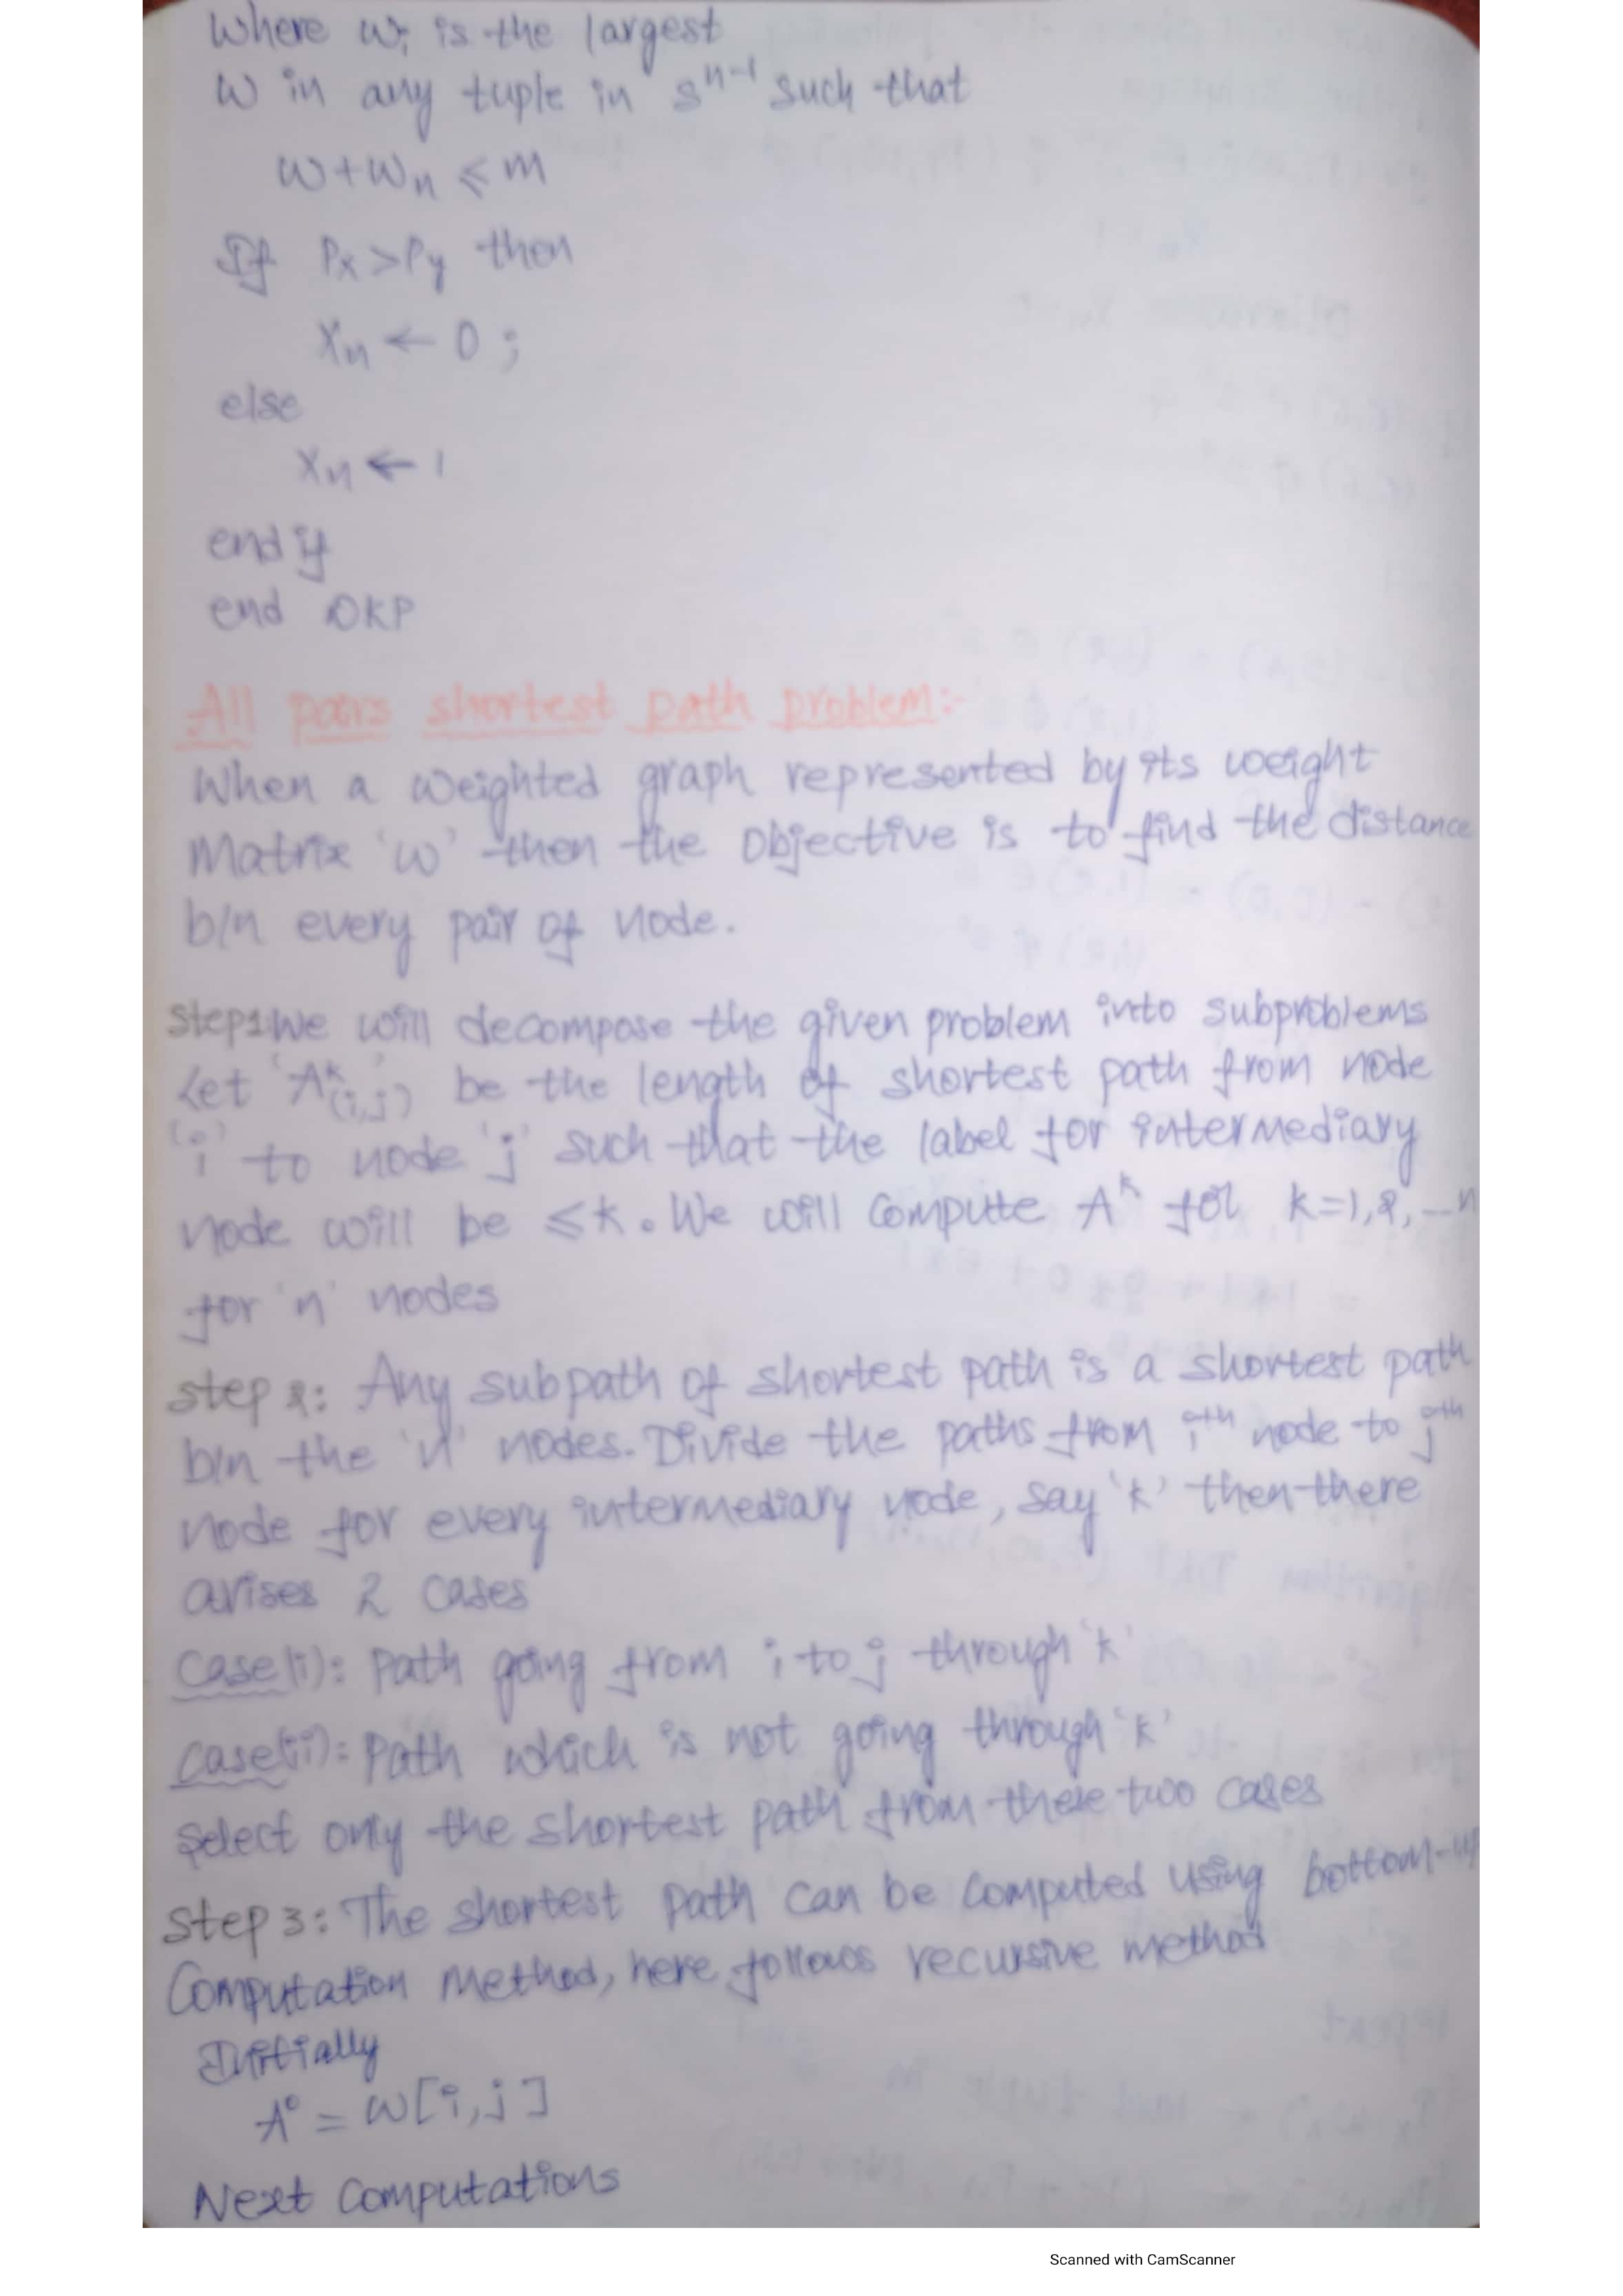 Where wᵢ is the largest
W in any tuple in sⁿ⁻¹ such that
W+Wₙ ≤ m
If Px>Py then
Xn ← 0 ;
else
Xn ← 1
end if
end DKP
All pairs shortest path problem:-
When a weighted graph represented by its weight
Matrix 'W' then the Objective is to find the distance
b/n every pair of node.
Step1:We will decompose the given problem into subproblems
Let 'Aᵏ(i,j)' be the length of shortest path from node
'i' to node 'j' such that the label for intermediary
node will be ≤k. We will compute Aᵏ for k=1,2,--n
for 'n' nodes
step 2: Any subpath of shortest path is a shortest path
b/n the 'n' nodes. Divide the paths from iᵗʰ node to jᵗʰ
node for every intermediary node, say 'k' then there
arises 2 cases
case(i): path going from i to j through 'k'
case(ii): Path which is not going through 'k'
select only the shortest path from these two cases
Step 3: The shortest path can be computed using bottom-up
Computation method, here follows recursive method
Initially
A⁰ = W[i,j]
Next Computations
Scanned with CamScanner